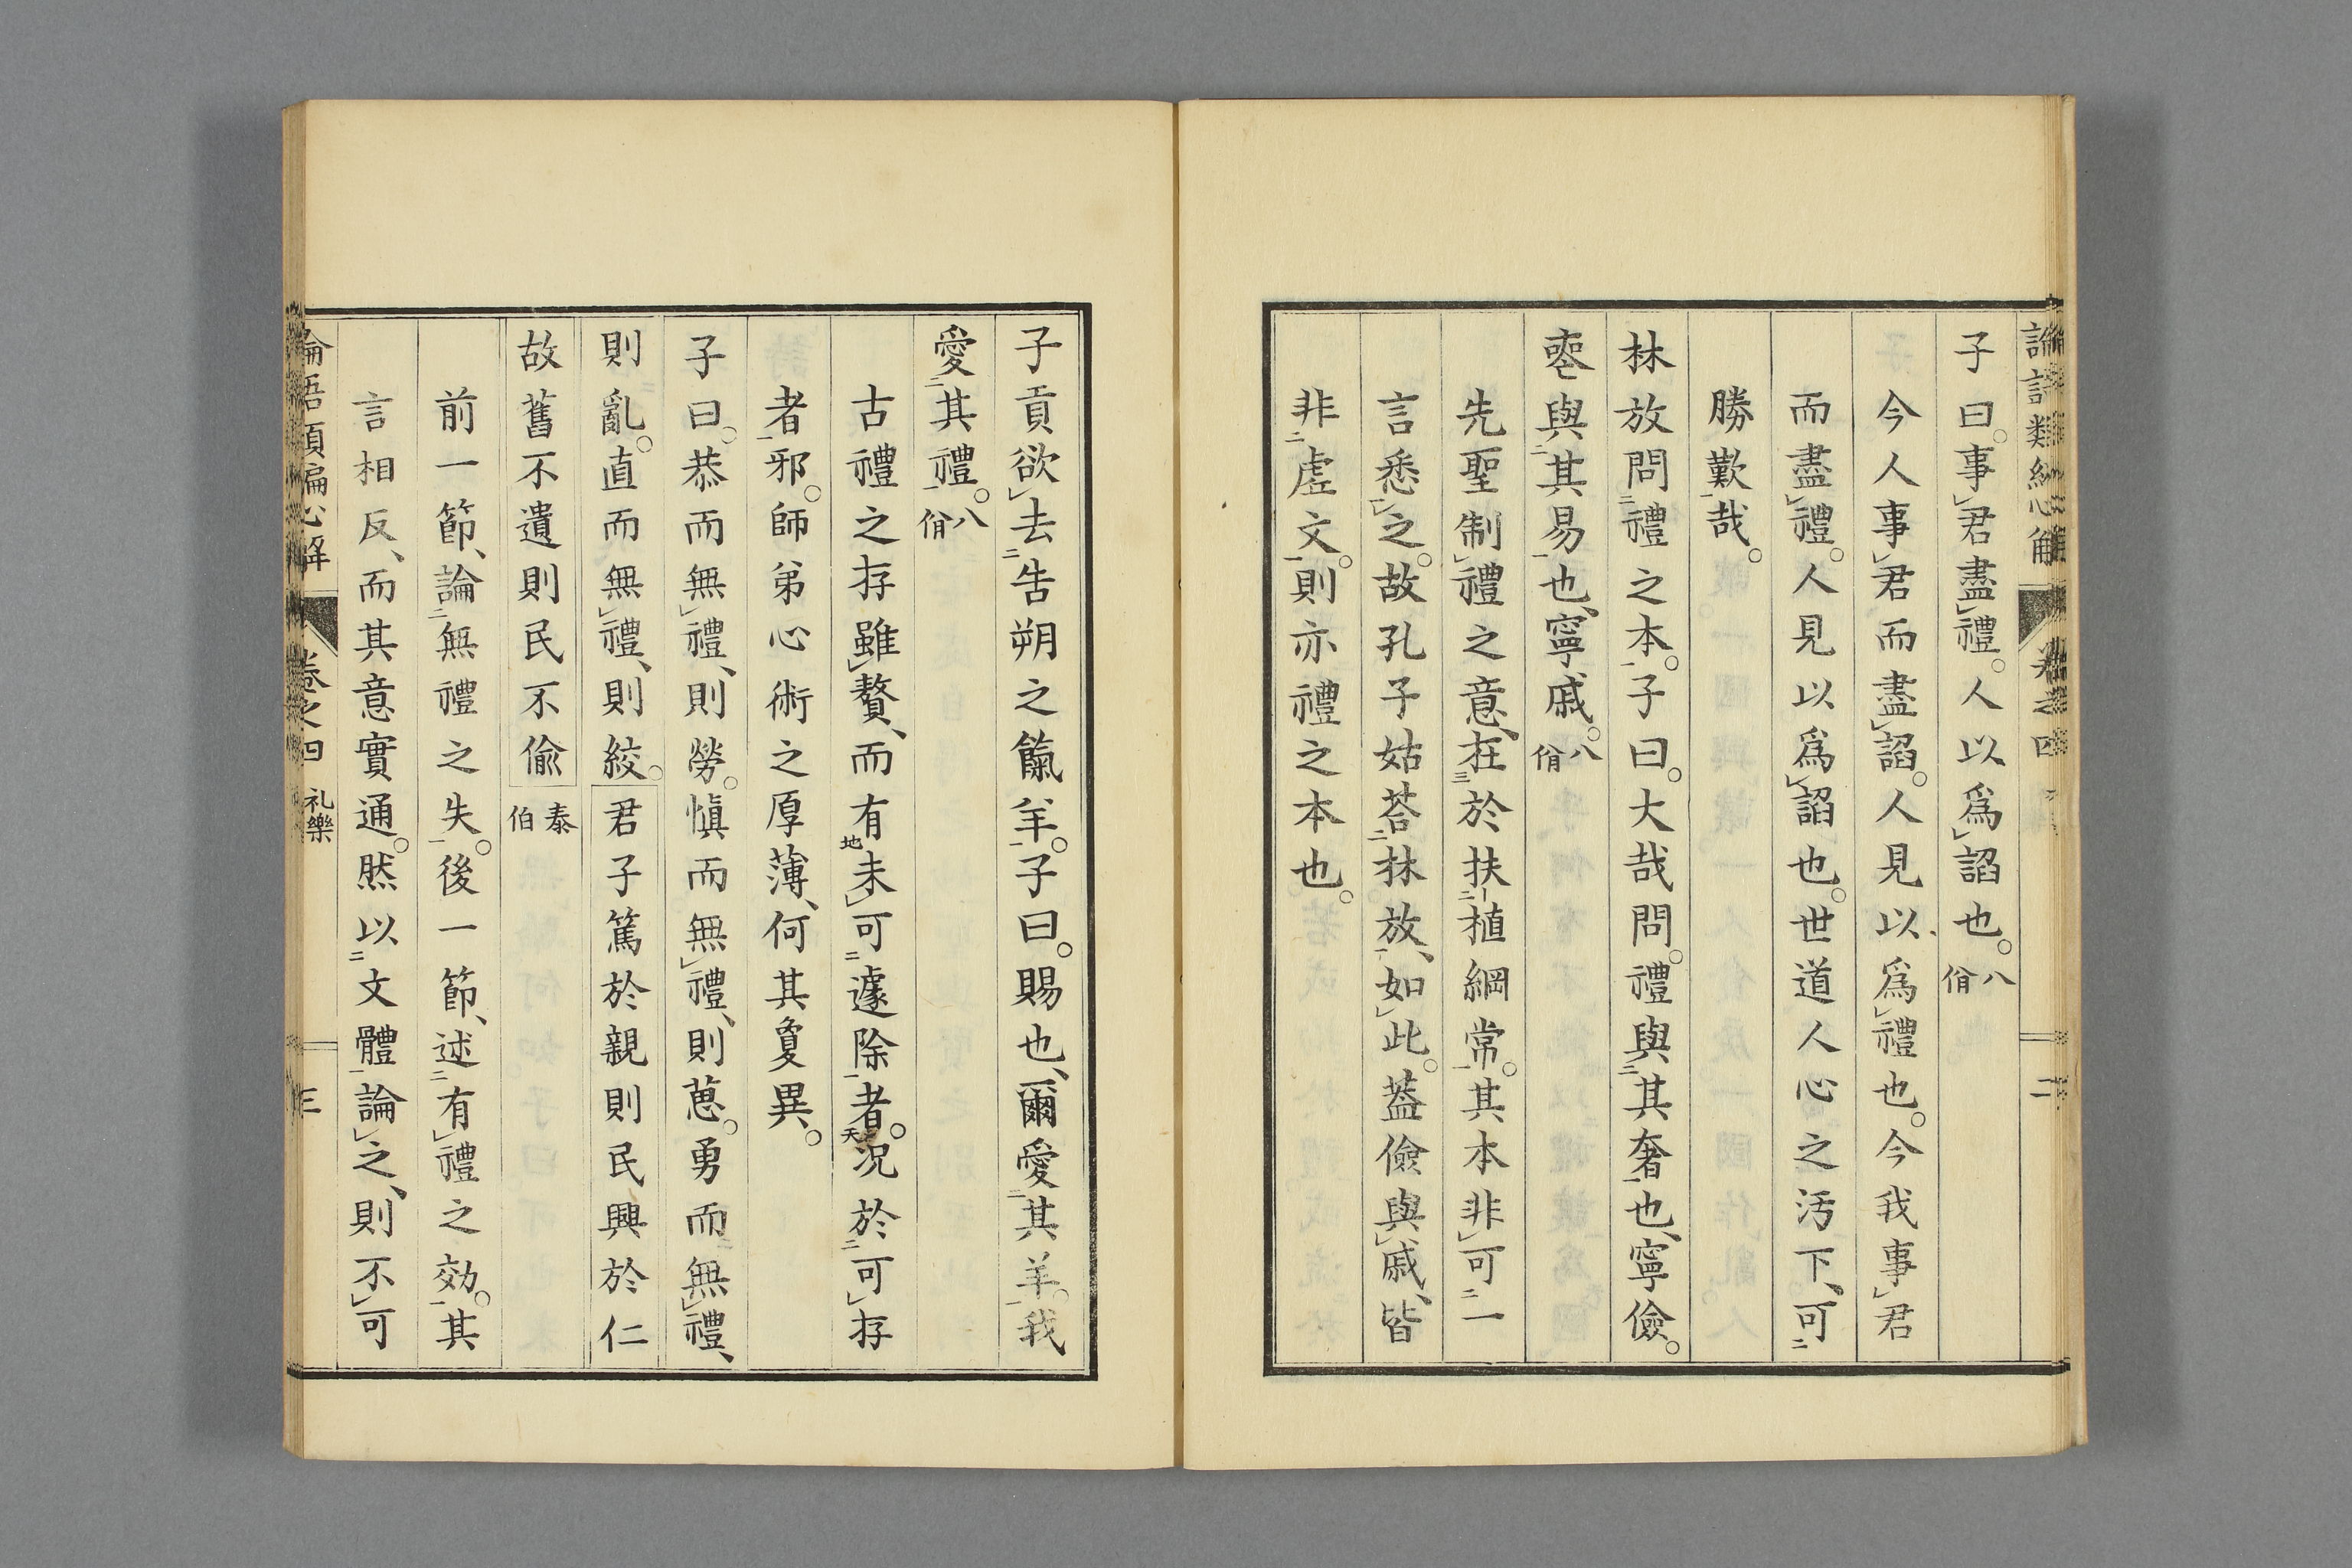 子曰。事君盡禮。人以爲諂也。八佾
今人事君而盡諂。人見以爲禮也。今我事君
而盡禮。人見以爲諂也。世道人心之汚下、可
勝歎哉。
林放問禮之本。子曰。大哉問。禮與其奢也、寧儉。
喪與其易也、寧戚。八佾
先聖制禮之意、在於扶植綱常。其本非可一
言悉之。故孔子姑荅林放、如此。蓋儉與戚、皆
非虛文。則亦禮之本也。
卷之四
二
子貢欲去告朔之餼羊。子曰。賜也、爾愛其羊。我
愛其禮。八佾
古禮之存雖贅、而有未可遽除者。況於可存
者邪。師弟心術之厚薄、何其敻異。
子曰。恭而無禮、則勞。愼而無禮、則葸。勇而無禮、
則亂。直而無禮、則絞。君子篤於親則民興於仁
故舊不遺則民不偸 泰伯
前一節、論無禮之失。後一節、述有禮之効。其
言相反、而其意實通。然以文體論之、則不可
卷之四 礼樂
三